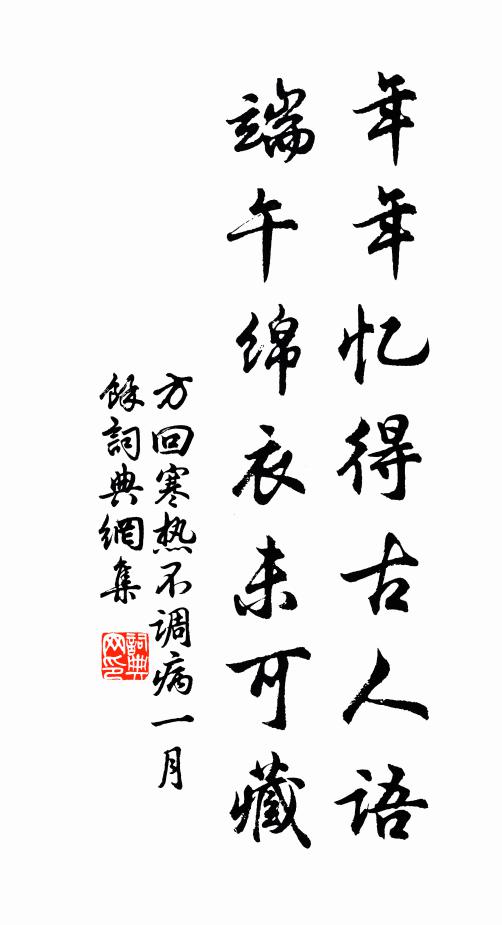 年年忆得古人语
端午绵衣未可藏
方回寒热不调病一月
馀詞典網集
詞典
网印